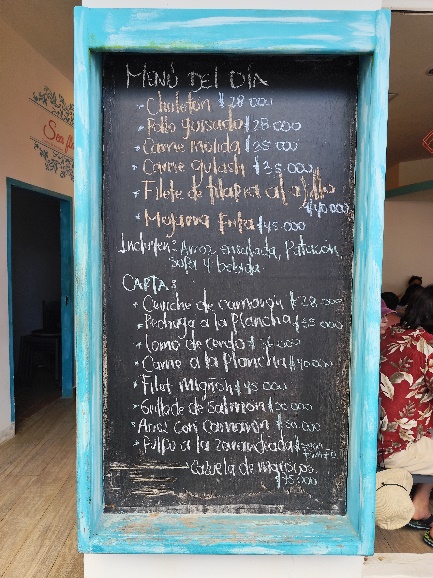 MENÚ DEL DÍA
* Chuletón $28.000
* Pollo guisado $28.000
* Carne molida $25.000
* Carne gulash $35.000
* Filete de tilapia al ajillo
$40.000
* Mojarra frita $45.000
Incluyen: Arroz, ensalada, Patacón,
sopa y bebida.
CARTA:
* Ceviche de camarón $28.000
* Pechuga a la plancha $35.000
* Lomo de cerdo $
* Carne a la plancha $40.000
* Filet Mignon $45.000
* Guillade de Salmon
* Arroz con Camarón
* Pulpo a la zarandeada
Cazuela de mariscos.
$75.000